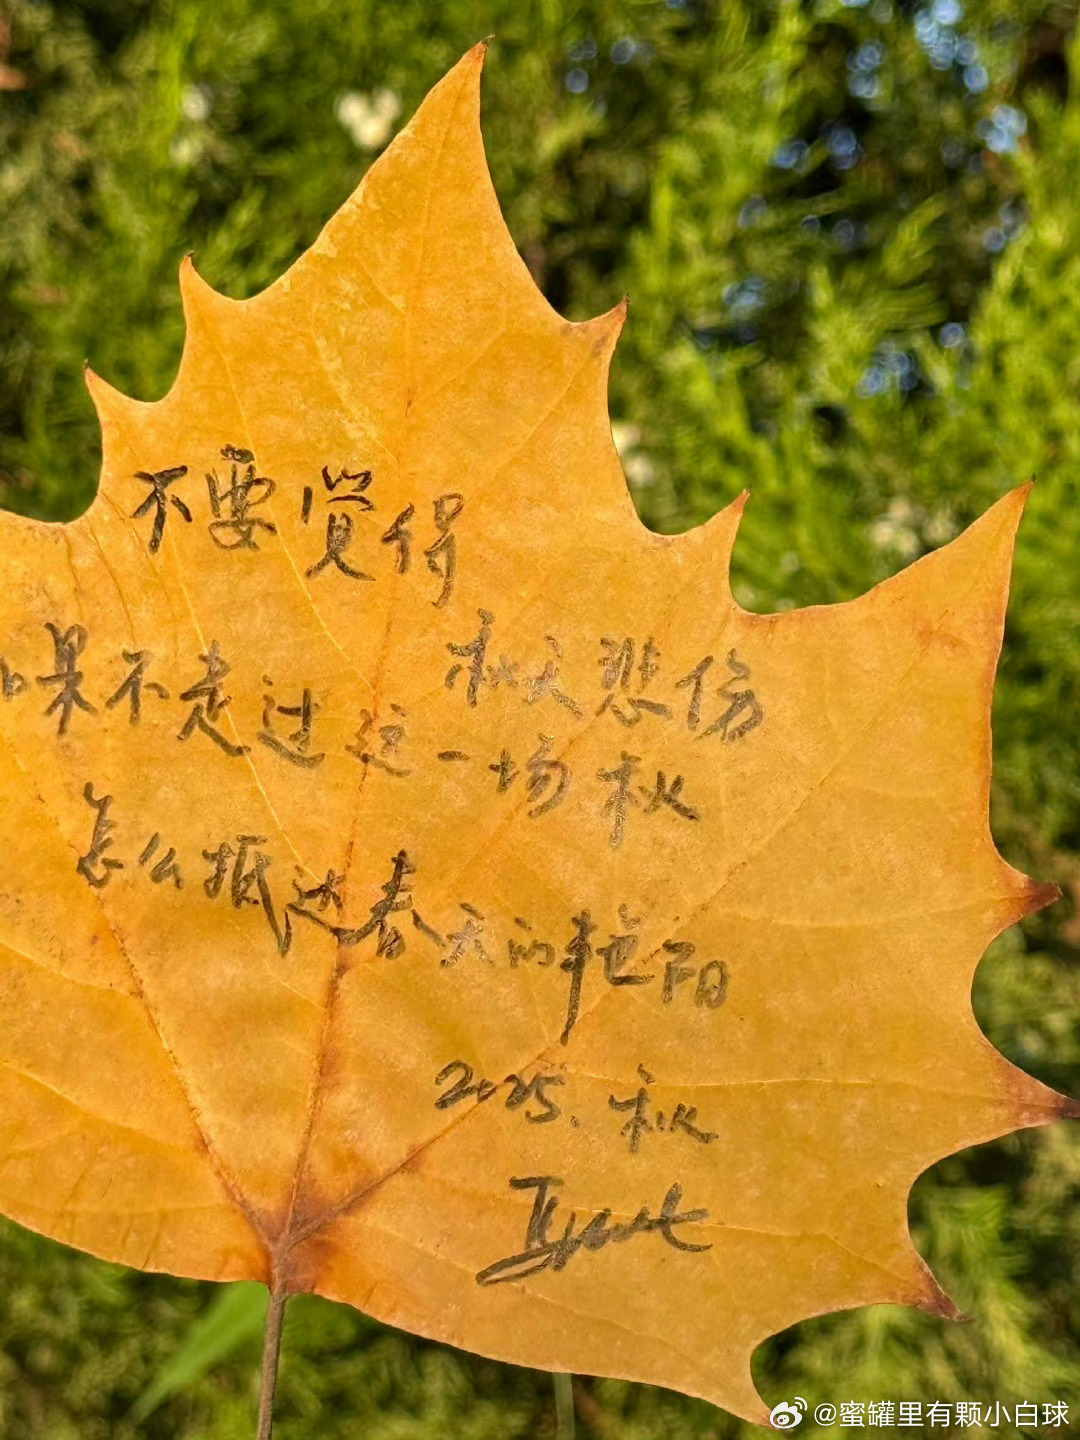 不要觉得
秋天悲伤
如果不走过这一场秋
怎么抵达春天的艳阳
2025.秋
@蜜罐里有颗小白球